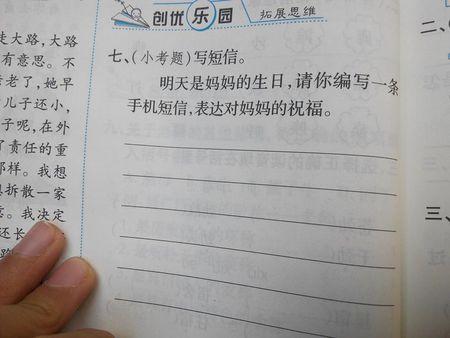 走大路,大路
有意思。不
老了,她早
儿子还小,
子呢,在外
了责任的重
那样。我想
拆散一家
。我决定
还长
创优乐园 拓展思维
七、(小考题)写短信。
明天是妈妈的生日,请你编写一条
手机短信,表达对妈妈的祝福。
二、
三、
过